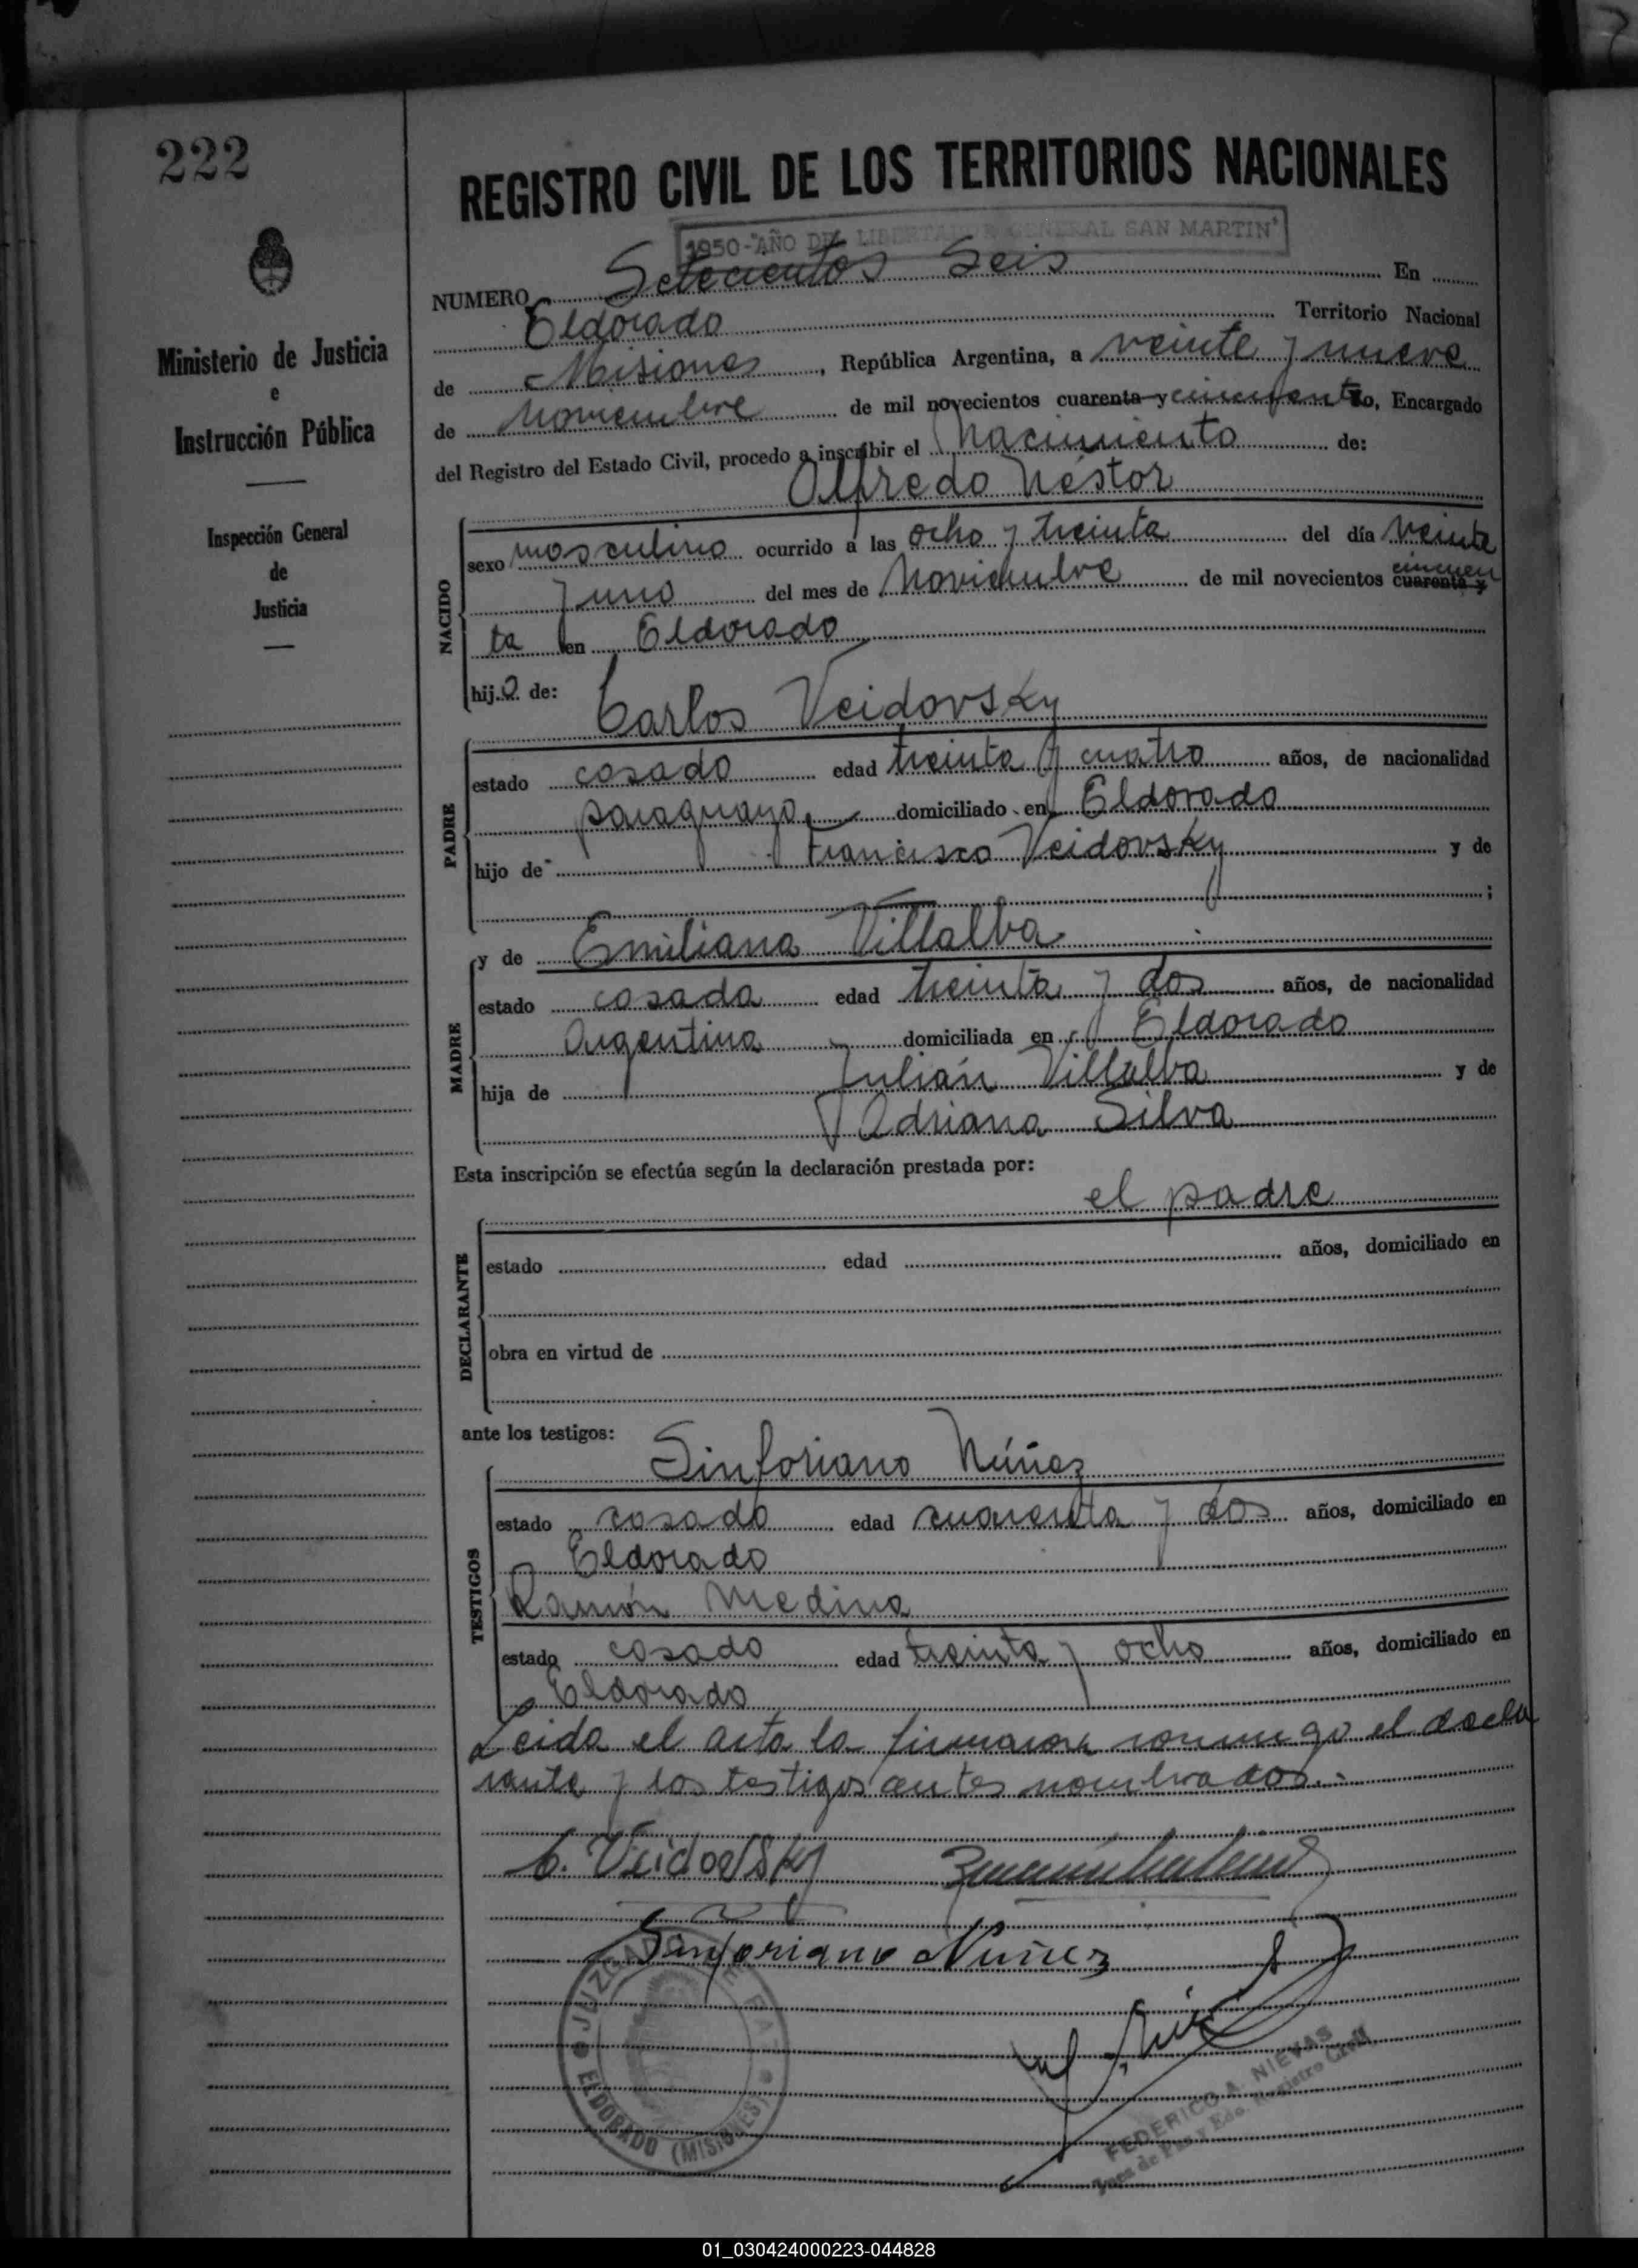 222
REGISTRO CIVIL DE LOS TERRITORIOS NACIONALES
1950-"AÑO DEL LIBERTADOR GENERAL SAN MARTIN"
NUMERO Setecientos Seis En
Eldorado Territorio Nacional
de Misiones, República Argentina, a veinte y nueve
de Noviembre de mil novecientos cuarenta y cincuenta yo, Encargado
del Registro del Estado Civil, procedo a inscribir el Nacimiento de:
Alfredo Néstor
Ministerio de Justicia
e
Instrucción Pública
Inspección General
de
Justicia
NACIDO
sexo masculino ocurrido a las ocho y treinta del día veinte
y uno del mes de Noviembre de mil novecientos cuarenta y cincuen
ta en Eldorado
hijo de:
Carlos Veidovsky
PADRE
estado casado edad treinta y cuatro años, de nacionalidad
paraguaya domiciliado en Eldorado
hijo de Francisco Veidovsky y de
;
y de Emiliana Villalba
MADRE
estado casada edad treinta y dos años, de nacionalidad
Argentina domiciliada en Eldorado
hija de Julián Villalba y de
Adriana Silva
Esta inscripción se efectúa según la declaración prestada por:
el padre
DECLARANTE
estado edad años, domiciliado en
obra en virtud de
ante los testigos:
Sinforiano Núñez
TESTIGOS
estado casado edad cuarenta y dos años, domiciliado en
Eldorado
Ramón Medina
estado casado edad treinta y ocho años, domiciliado en
Eldorado
Leida el acta la firmaron conmigo el decla
rante y los testigos antes nombrados.-
C. Veidovsky
Sinforiano Nuñez
JUZGADO DE PAZ
ELDORADO (MISIONES)
FEDERICO A. NIEVAS
Juez de Paz y Edo. Registro Civil
01_030424000223-044828